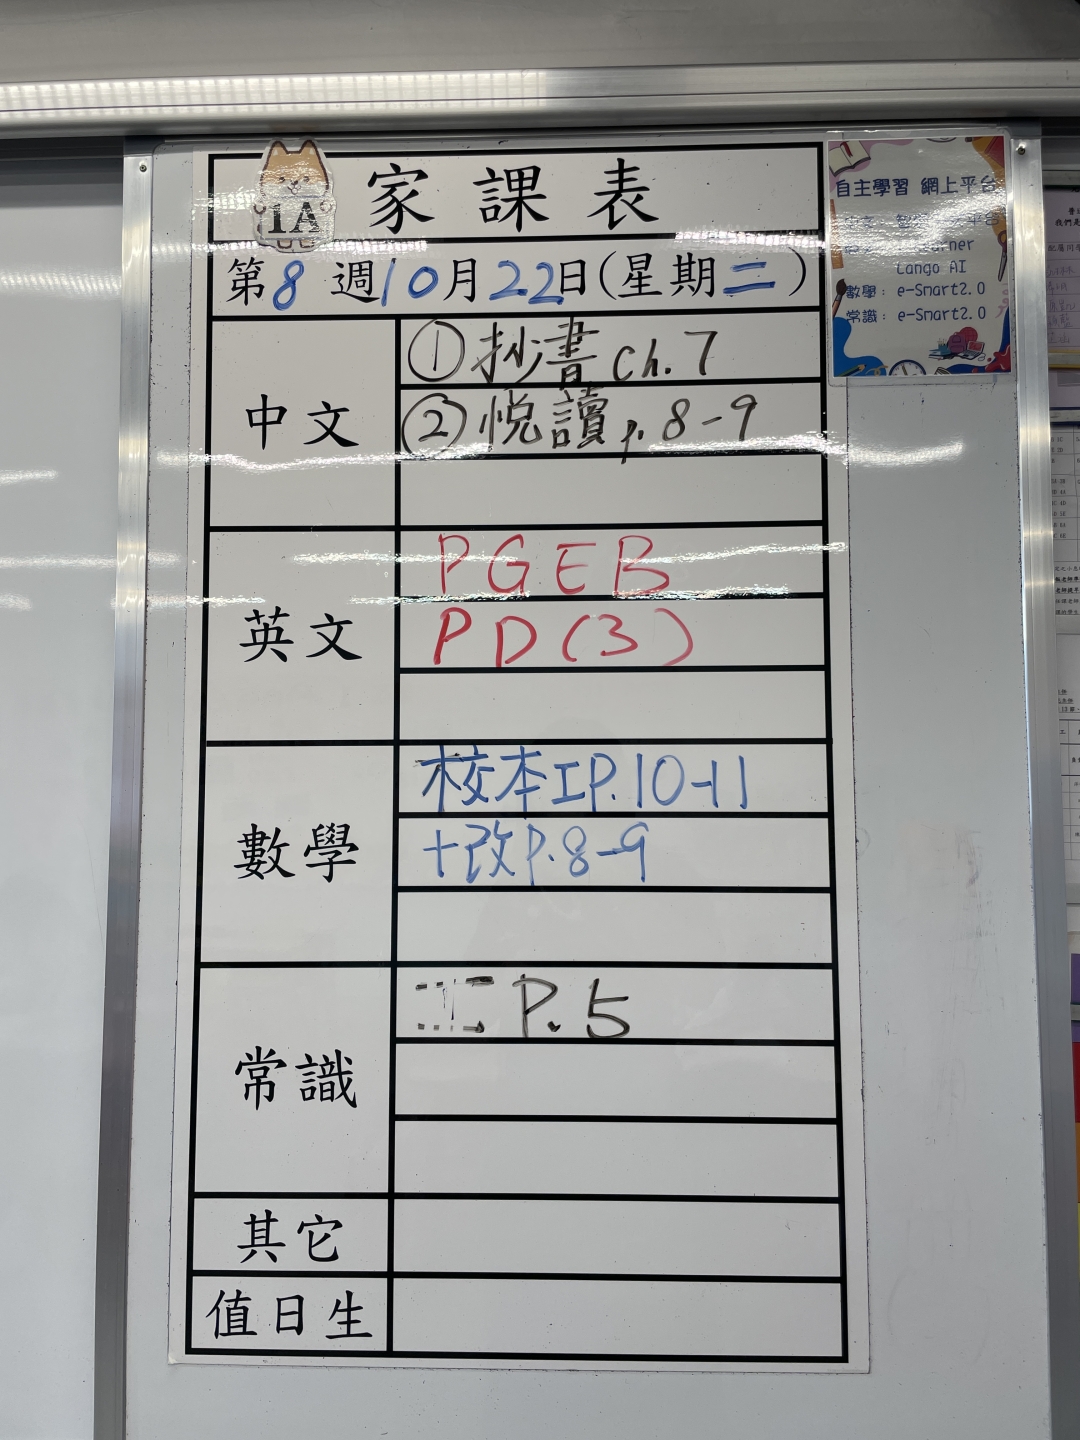 1A
家課表
第8週10月22日(星期二)
中文
①抄書 ch.7
②悦讀 p.8-9
英文
PGEB
PD(3)
數學
校本工P.10-11
+改P.8-9
常識
P.5
其它
值日生
自主學習 網上平台
Lango AI
數學：e-Smart2.0
常識：e-Smart2.0